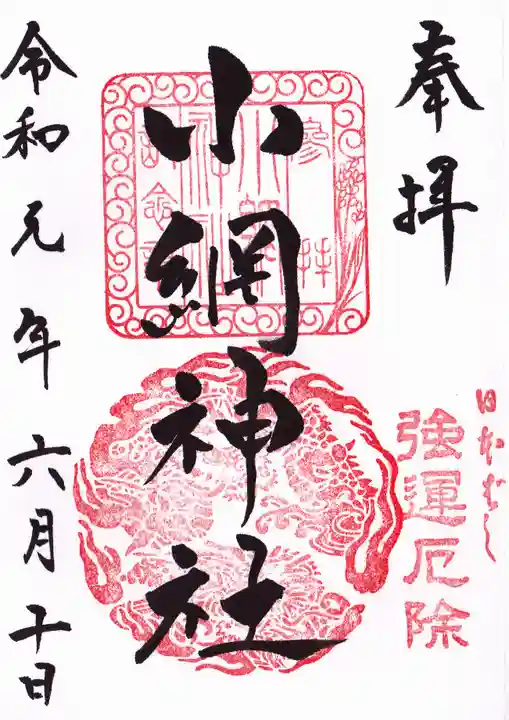 奉拝
日本ばし
強運厄除
小網神社
令和元年六月十日